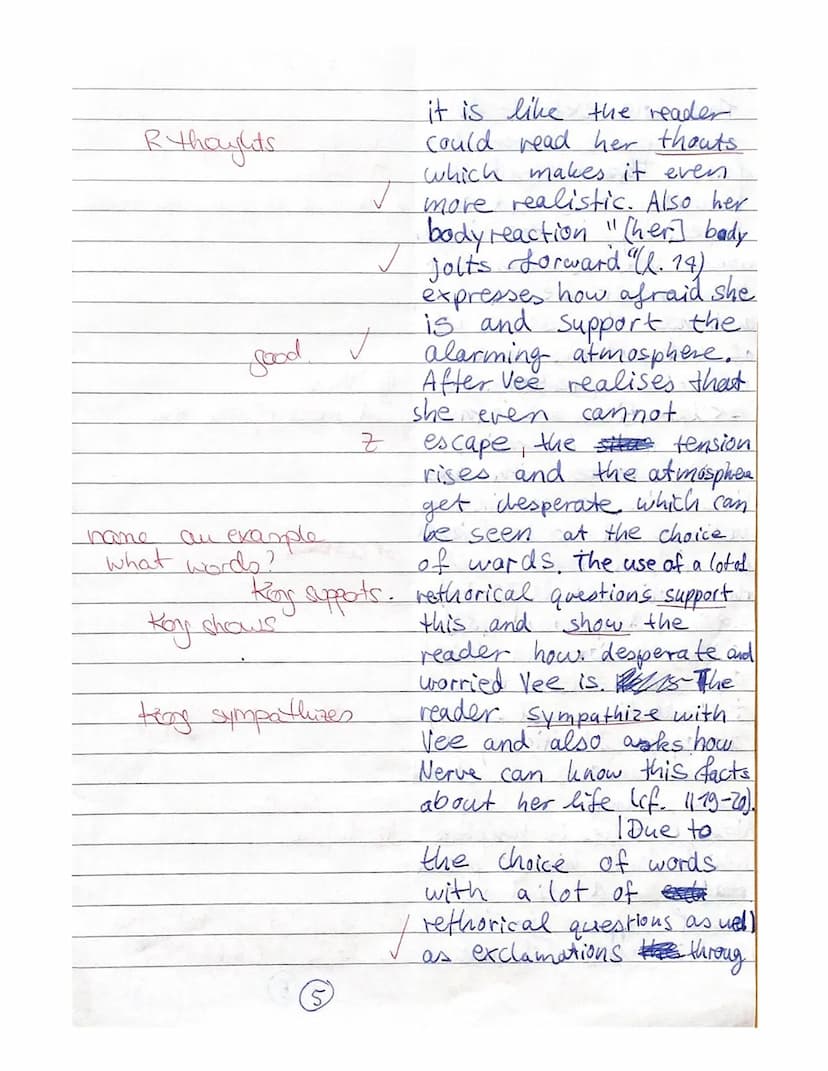 it is like the reader
R thoughts
could read her thouts
which makes it even
more realistic. Also her
bodyreaction "[her] body
jolts forward" (l. 14)
expresses how afraid she
is and support the
good
alarming atmosphere.
After Vee realises that
she even cannot
Z
escape, the tension
rises and the atmosphere
get desperate which can
name an example
be seen at the choice
what words?
of words. The use of a lot of
supports.
rethorical questions support
shows
this and show the
reader how desperate and
worried Vee is. The
sympathizes
reader sympathize with
Vee and also asks how
Nerve can know this facts
about her life (cf. ll 19-20).
|Due to
the choice of words
with a lot of
rethorical questions as well
as exclamations throug
5